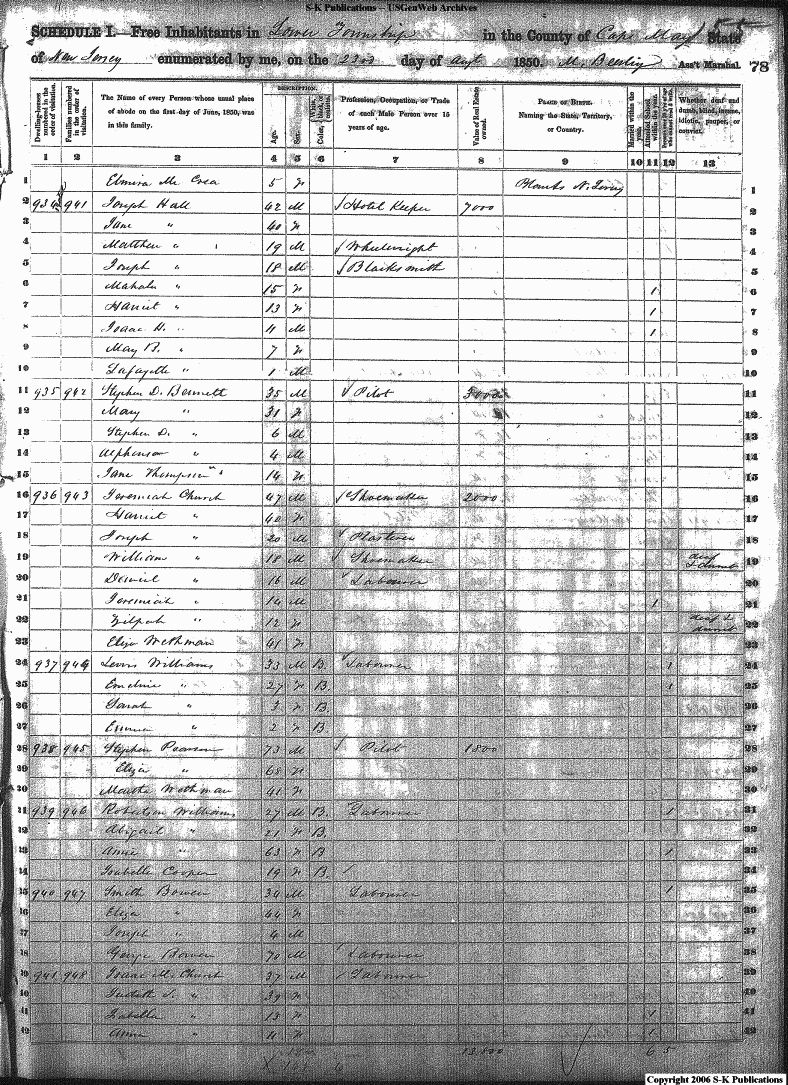 S-K Publications – USGenWeb Archives
SCHEDULE I.—Free Inhabitants in Lower Township in the County of Cape May State
of New Jersey enumerated by me, on the 23rd day of Augt 1850. Ass't Marshal. 78
Dwelling-houses numbered in the order of visitation. Families numbered in the order of visitation. The Name of every Person whose usual place of abode on the first day of June, 1850, was in this family. DESCRIPTION. Age. Sex. Color, Profession, Occupation, or Trade of each Male Person over 15 years of age. Value of Real Estate owned. PLACE OF BIRTH. Naming the State, Territory, or Country. Married within the year. Attended School within the year. Whether deaf and dumb, blind, insane, idiotic, pauper, or convict.
1 2 3 4 5 6 7 8 9 10 11 12 13
1 Elmira Mc Crea 5 F N. Jersey 1
2 934 941 Joseph Hall 42 M Hotel Keeper 7000 2
3 Jane " 40 F 3
4 Matthew " 19 M Wheelwright 4
5 Joseph " 18 M Blacksmith 5
6 Mahala " 15 F 1 6
7 Harriet " 13 F 1 7
8 Isaac H. " 11 M 1 8
9 May B. " 7 F 9
10 Lafayette " 1 M 10
11 935 942 Stephen D. Bennett 35 M Pilot 3000 11
12 Mary " 31 F 12
13 Stephen D. " 6 M 13
14 Alphonso " 4 M 14
15 Jane Thompson " 14 F 15
16 936 943 Jeremiah Church 47 M Shoemaker 2000 16
17 Harriet " 40 F 17
18 Joseph " 20 M Plasterer 18
19 William " 18 M Shoemaker deaf & dumb 19
20 Daniel " 16 M Labourer 20
21 Jeremiah " 14 M 1 21
22 Zilpah " 12 F deaf & dumb 22
23 Eliza Wethman 41 F 23
24 937 944 Lewis Williams 33 M B. Labourer 1 24
25 Emeline " 27 F B. 1 25
26 Sarah " F B. 26
27 Emma " 2 F B. 27
28 938 945 Stephen Pearson 73 M Pilot 1800 28
29 Eliza " 68 F 29
30 Martha Wethman 41 F 30
31 939 946 Robertson Williams 27 M B. Labourer 1 31
32 Abigail " 21 F B. 32
33 Annie " 63 F B 1 33
34 Isabella Cooper 19 F B. 34
35 940 947 Smith Bowen 34 M Labourer 1 35
36 Eliza " 44 F 36
37 Joseph " 4 M 37
38 George Bowen 70 M Labourer 38
39 941 948 Isaac M. Church 37 M Labourer 39
40 Judith S. " 39 F 40
41 Isabella " 13 F 1 41
42 Anna " 11 F 1 42
13,800 6 5
Copyright 2006 S-K Publications